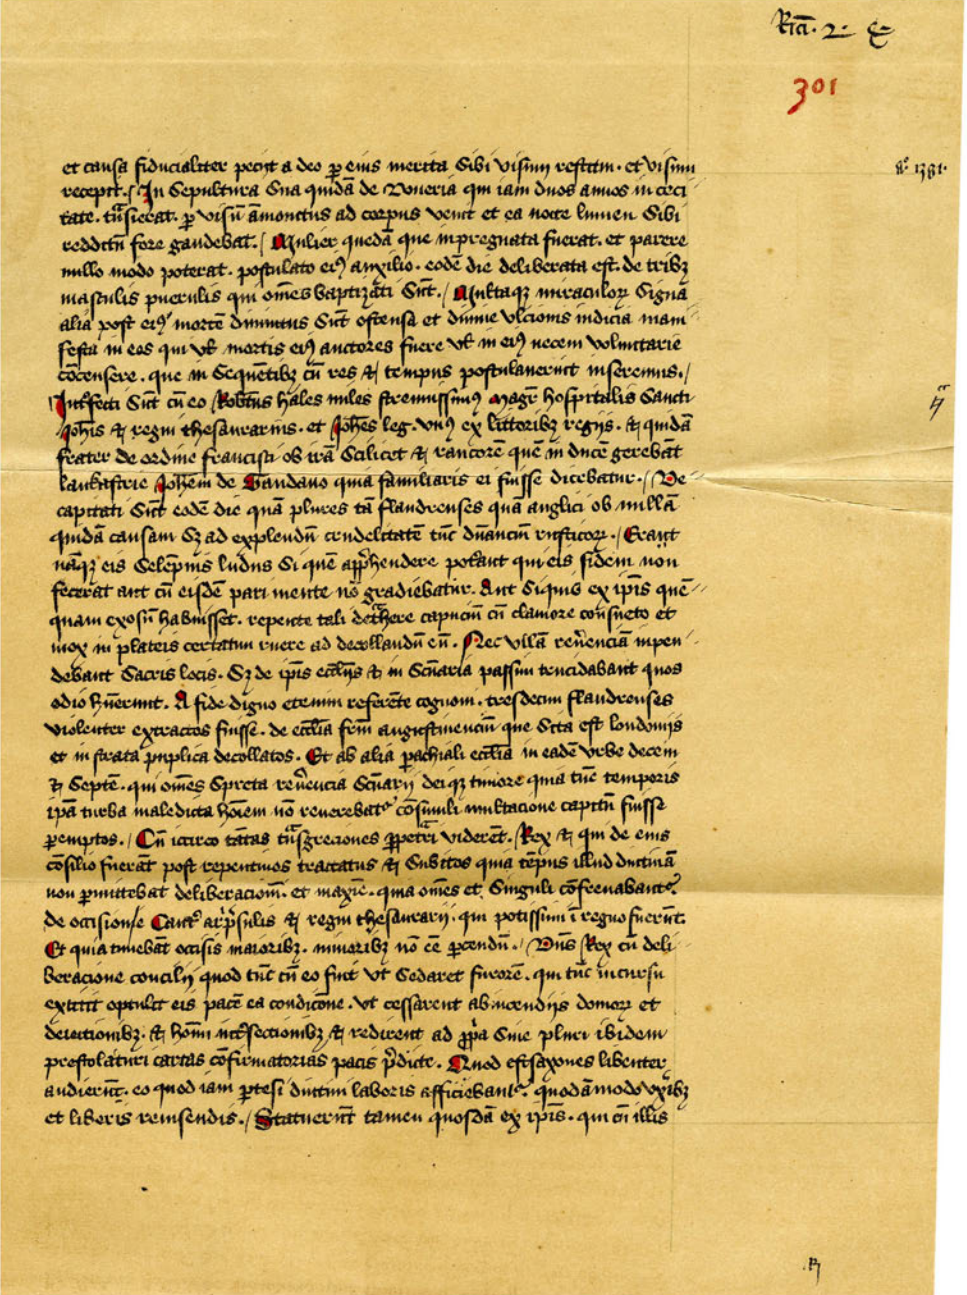 Rica. 2. 
301
et causa fiducialiter peciit a deo p eius merita Sibi visum restitui. et visum
aº 1381.
recepit./ In Sepultura Sua quidā de Doueria qui iam duos annos in ceci
tate. tnsierat. p visū āmonitus ad corpus venit et ea nocte lumen Sibi
redditū fore gaudebat./ Mulier quedā que inpregnata fuerat. et parere
nullo modo poterat. postulato eiꝰ auxilio. eodē die deliberata est. de tribꝫ
masculis puerulis qui om̄es baptizati Sūt./ Multaqꝫ miraculorꝝ Signa
alia post eiꝰ mortē diuinitus Sūt ostensa et diuine vlcionis indicia mani
festa in eos qui vł mortis eiꝰ auctores fuere vł in eiꝰ necem voluntarie
cōcensere. que in Sequētibꝫ cū res ⁊ tempus postulauerint inseremus./
Intfecti Sūt cū eo Robtus hales miles strenuissimꝰ magr̄ hospitalis Sancti
Joħis ⁊ regni thesaurarius. et Joħes leg. vnꝰ ex littoribꝫ regijs. ⁊ quidā
frater de ordine francisci ob irā Scilicet ⁊ rancorē quē in ducē gerebāt
lankastrie Joħem de Gandauo quia familiaris ei fuisse dicebatur./ De
capitati Sūt eodē die quā plures tā flandrenses quā anglici ob nullā
quidā causam Sꝫ ad explendū crudelitatē tūc dn̄anciū rusticorꝝ./ Erant
nāqꝫ eis Solēpnis ludus Si quē apphendere potāt qui eis fidem non
fecerat aut cū eisdē pari mente nō gradiebatur. Aut Siquis ex ip̄is quē
quam exosū habuisset. repente tali dethere capuciū cū clamore consueto et
mox in plateis certatim ruere ad decollandū eū. Nec vllā reuenciā inpen
debant Sacris locis. Sꝫ de ip̄is eccl̄ijs ⁊ in Scuaria passim trucidabant quos
odio huerunt. A fide digno etenim referēte cognoui. tresdecim flandrenses
violenter extractos fuisse. de eccl̄ia frm augustinenciū que Sita est londonijs
et in strata puplica decollatos. Et ab alia pachiali eccl̄ia in eadē vrbe decem
⁊ Septē. qui om̄es Spreta reuencia Scuarij deiqꝫ timore quia tūc temporis
ip̄a turba maledicta hoīem nō reuerebat cōsimili multacione capitū fuisse
pemptos./ Cū iccirco tātas tnsgreciones ppetri viderēt. Rex ⁊ qui de eius
cōsilio fuerāt post repentinos tractatus ⁊ Subitos quia tēpus illud diutinā
non pmittebat deliberacionē. et maxīe. quia om̄es et Singuli cōfrenabant
de occisione Cant arp̄sulis ⁊ regni thesaurarij. qui potissimi ī regno fuerūt.
Et quia timebāt occisis maioribꝫ. minoribꝫ nō eē pcendū./ Dn̄s Rex cū deli
beracione concilij quod tūc cū eo fuit vt Sedaret furorē. qui tūc in cursu
extitit optulit eis pacē ea condicōne. vt cessarent ab incendijs domorꝝ et
deiectionibꝫ. ⁊ hoīm intfectionibꝫ ⁊ redirent ad ppa Sine pluri ibidem
prestolaturi cartas cōfirmatorias pacis pdicte. Quod estsaxones libenter
audierūt. eo quod iam ptesi diutini laboris afficiebant. quodāmodo vxibꝫ
et liberis reuisendis./ Statuerūt tamen quosdā ex ip̄is. qui cū illis